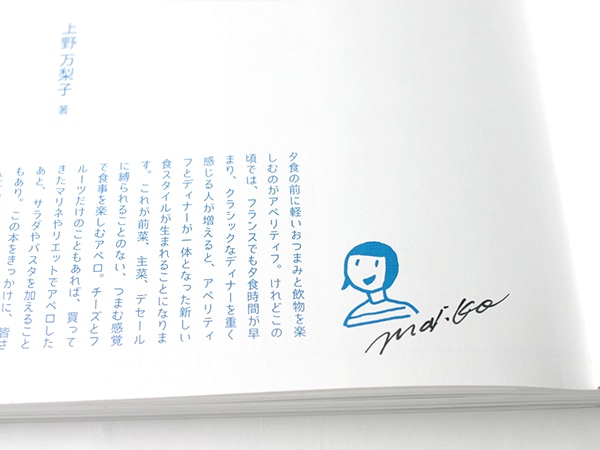 上野万梨子 著
夕食の前に軽いおつまみと飲物を楽
しむのがアペリティフ。けれどこの
頃では、フランスでも夕食時間が早
まり、クラシックなディナーを重く
感じる人が増えると、アペリティ
フとディナーが一体となった新しい
食スタイルが生まれることになりま
す。これが前菜、主菜、デセール
に縛られることのない、つまむ感覚
で食事を楽しむアペロ。チーズとフ
ルーツだけのこともあれば、買って
きたマリネやリエットでアペロした
あと、サラダやパスタを加えること
もあり。この本をきっかけに、皆さ
mari.ko